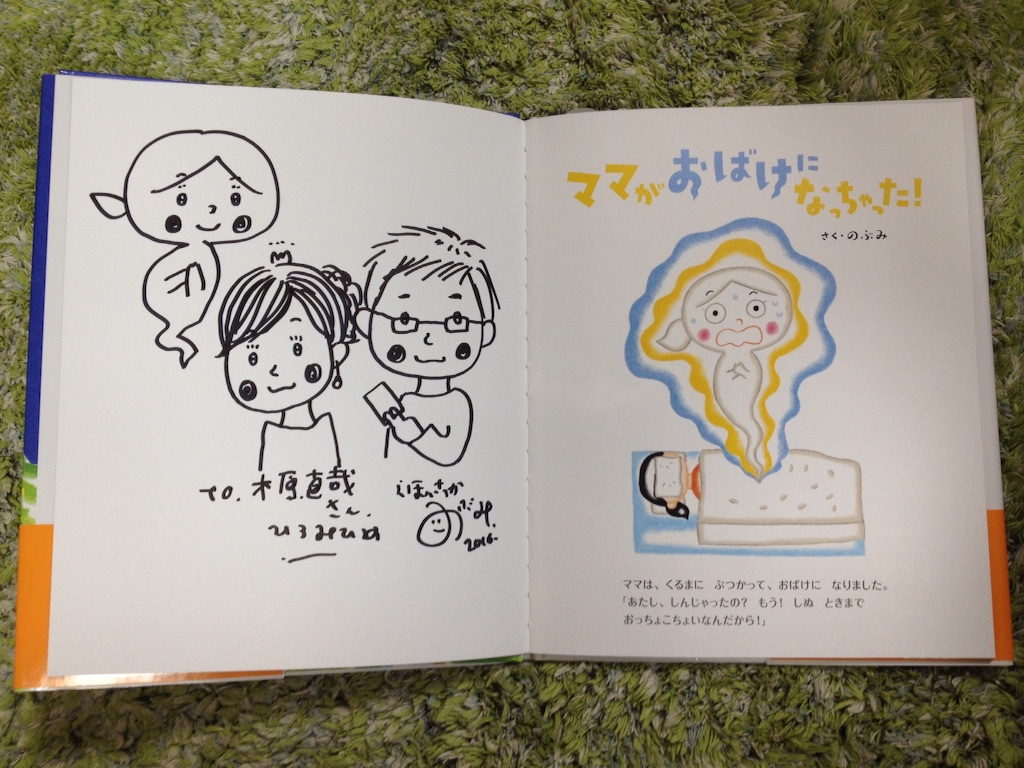 to. 木原直哉
さん
ひろみひめ
えほんさっか
のぶみ.
2016.
ママがおばけになっちゃった!
さく・のぶみ
ママは、くるまに ぶつかって、おばけに なりました。
「あたし、しんじゃったの? もう! しぬ ときまで
おっちょこちょいなんだから!」